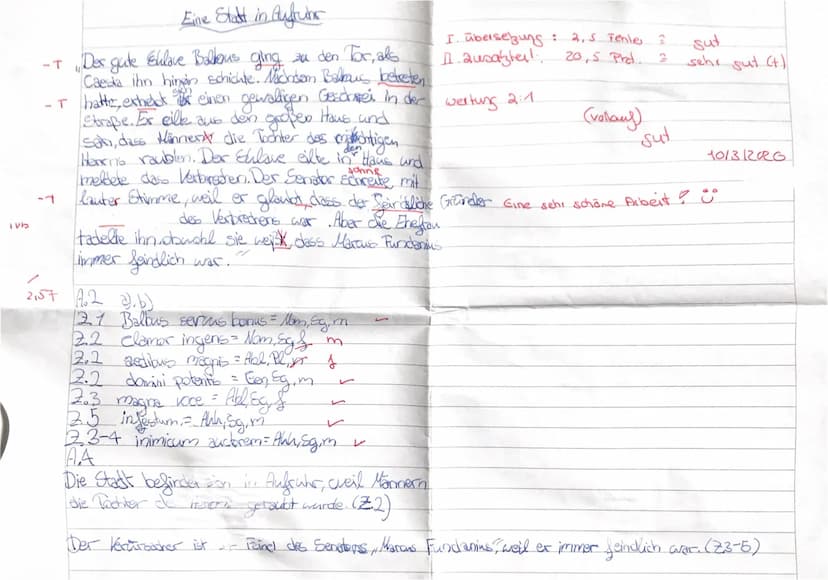 Eine Stadt in Aufruhr
I. Übersetzung : 2,5 Fehler = gut
II. Zusatzteil : 20,5 Pkt. = sehr gut (+)
Wertung 2:1
(vorläuf)
gut
10/3/2020
-T "Der gute Sklave Balbus ging zu den Tor, als
Caesta ihn hinein schickte. Nachdem Balbus betreten
-T hatte, erhebt einen gewaltigen Geschrei in der
Straße. Er eilte aus dem großen Haus und
sah, dass Männer die Töchter des mächtigen
Herrns rauben. Der Sklave eilte in den Haus und
meldete das Verbrechen. Der Senator schreite mit
-1 lauter Stimme, weil er glaubt, dass der feindliche Gründer
des Verbrechens war. Aber die Ehefrau
tadelte ihn, obwohl sie weiß, dass Marcus Fundanius
immer feindlich war."
Eine sehr schöne Arbeit!
2,5F
A.2 a), b)
Z.1 Balbus servus bonus = Nom, Sg, m
Z.2 clamor ingens = Nom, Sg, f m
Z.2 aedibus magnis = Abl, Pl, f
Z.2 domini potentis = Gen, Sg, m
Z.3 magna voce = Abl, Sg, f
Z.5 infestum = Akk, Sg, m
Z.3-4 inimicum auctorem = Akk, Sg, m
A.4
Die Stadt befindet in Aufruhr, weil Männern
die Töchter geraubt wurde. (Z.2)
Der Verursacher ist Feind des Senators "Marcus Fundanius", weil er immer feindlich war. (Z3-5)